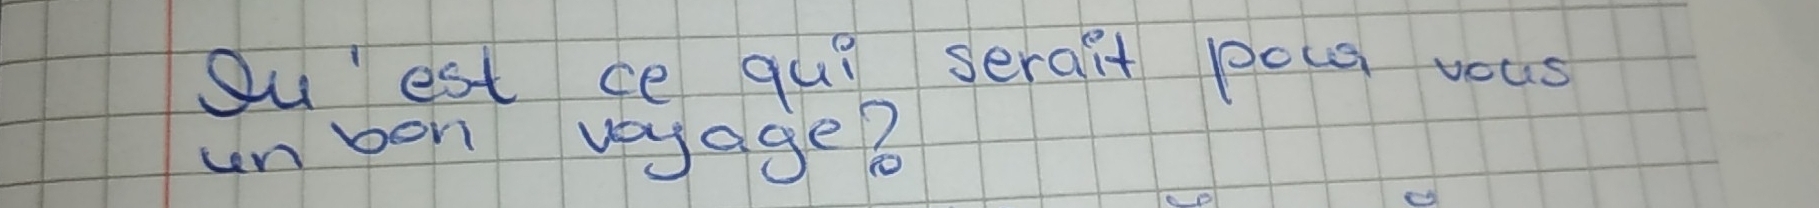 Qu'est ce qui serait pour vous
un bon voyage?